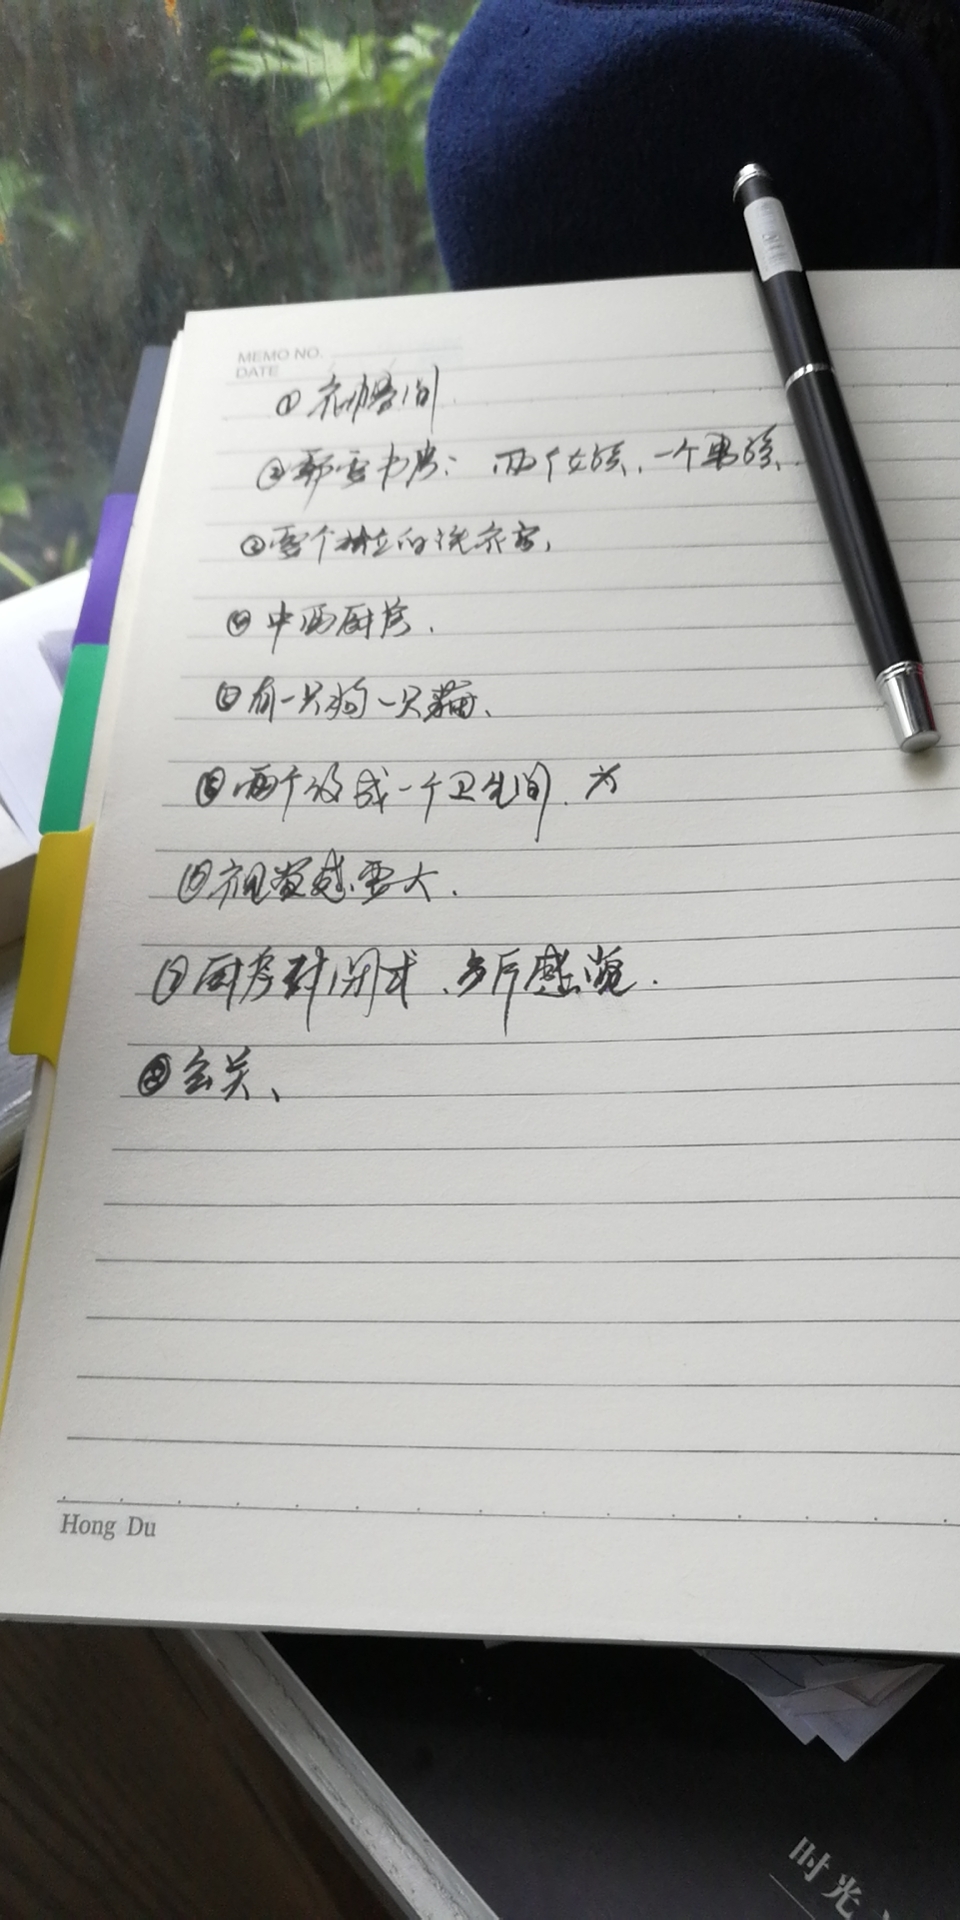 MEMO NO.
DATE
① 衣帽间
② 都要书房: 两个女孩、一个男孩、
③ 要个独立的洗衣房,
④ 中西厨房.
⑤ 有一只狗一只猫、
⑥ 两个改成一个卫生间.
⑥ 视觉感要大.
⑦ 厨房封闭式、
⑧ 玄关、
Hong Du
时光